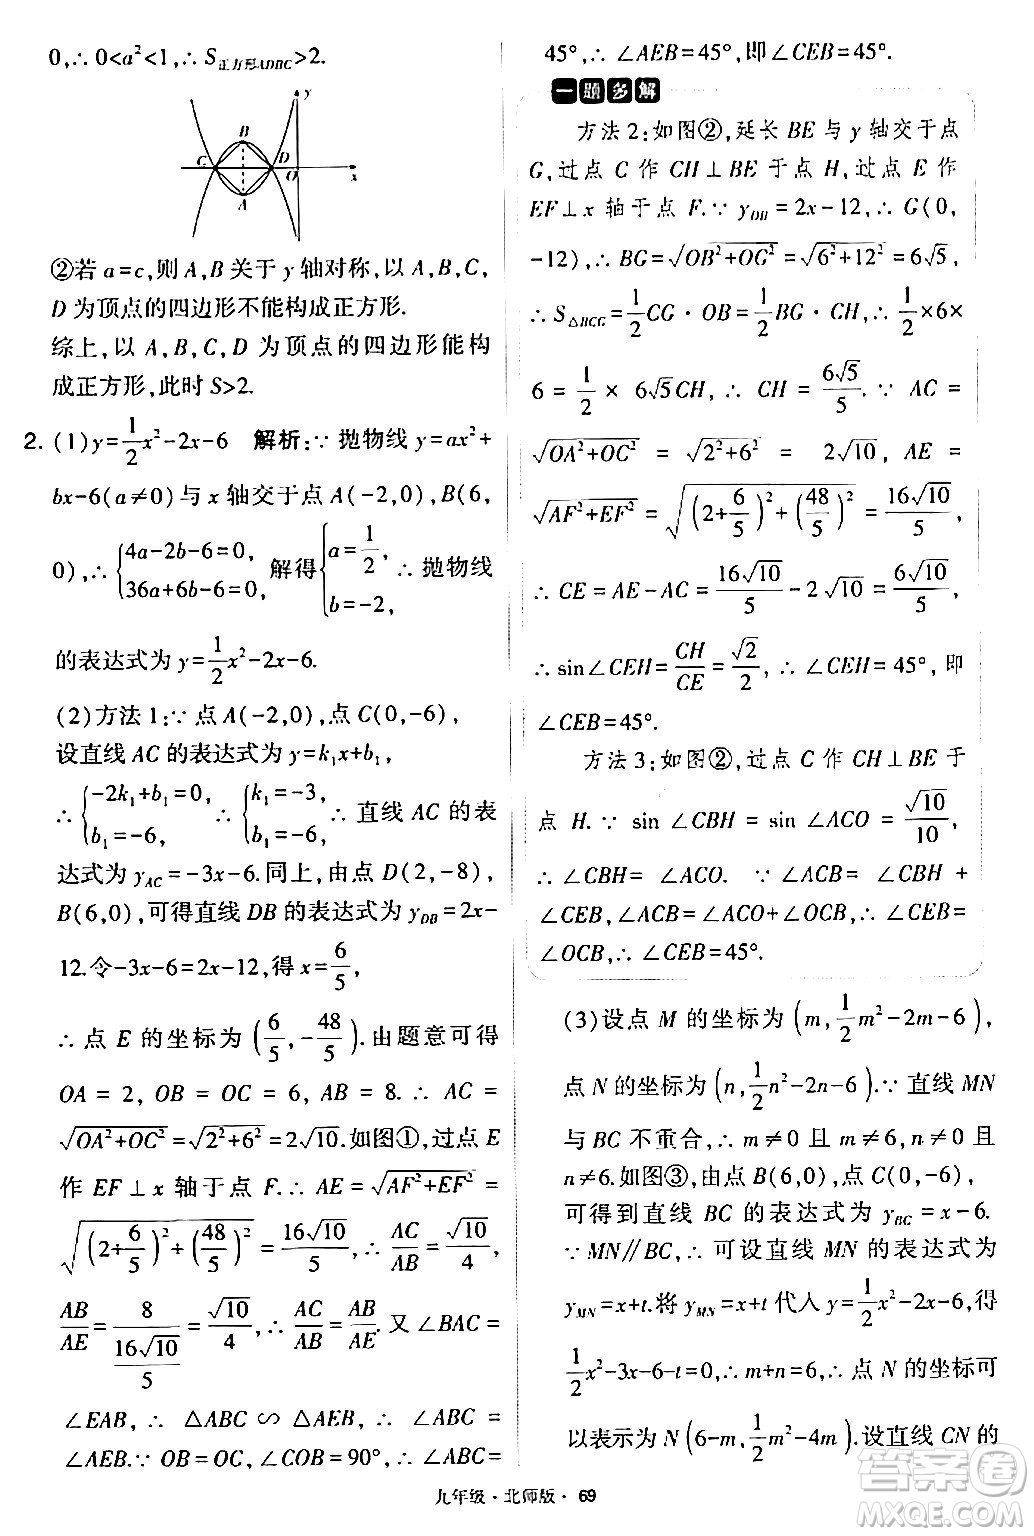 0,∴ 0<a²<1,∴ S正方形ADBC>2.
y
B
C
D
O
x
A
②若 a=c,则 A,B 关于 y 轴对称,以 A,B,C,
D 为顶点的四边形不能构成正方形.
综上,以 A,B,C,D 为顶点的四边形能构
成正方形,此时 S>2.
2. (1)y=1/2x²-2x-6 解析:∵ 抛物线 y=ax²+
bx-6(a≠0)与 x 轴交于点 A(-2,0),B(6,
0),∴ {4a-2b-6=0, 36a+6b-6=0, 解得 {a=1/2, b=-2, ∴ 抛物线
的表达式为 y=1/2x²-2x-6.
(2)方法 1:∵ 点 A(-2,0),点 C(0,-6),
设直线 AC 的表达式为 y=k₁x+b₁,
∴ {-2k₁+b₁=0, b₁=-6, ∴ {k₁=-3, b₁=-6, ∴ 直线 AC 的表
达式为 y_AC=-3x-6.同上,由点 D(2,-8),
B(6,0),可得直线 DB 的表达式为 y_DB=2x-
12.令-3x-6=2x-12,得 x=6/5,
∴ 点 E 的坐标为 (6/5,-48/5).由题意可得
OA = 2, OB = OC = 6, AB = 8. ∴ AC =
√(OA²+OC²)=√(2²+6²)=2√10.如图①,过点 E
作 EF⊥x 轴于点 F.∴ AE=√(AF²+EF²)=
√((2+6/5)²+(48/5)²)=16√10/5,∴ AC/AB=√10/4,
AB/AE=8/(16√10/5)=√10/4,∴ AC/AB=AB/AE.又∠BAC=
∠EAB, ∴ △ABC∽△AEB, ∴ ∠ABC =
∠AEB.∵ OB=OC,∠COB=90°,∴ ∠ABC=
45°,∴ ∠AEB=45°,即∠CEB=45°.
一题多解
方法 2:如图②,延长 BE 与 y 轴交于点
G,过点 C 作 CH⊥BE 于点 H,过点 E 作
EF⊥x 轴于点 F.∵ y_DB=2x-12,∴ G(0,
-12),∴ BG=√(OB²+OG²)=√(6²+12²)=6√5
∴ S△BCG=1/2CG·OB=1/2BG·CH,∴ 1/2×6×
6 = 1/2 × 6√5CH, ∴ CH = 6√5/5. ∵ AC =
√(OA²+OC²) = √(2²+6²) = 2√10, AE =
√(AF²+EF²) = √((2+6/5)²+(48/5)²)=16√10/5,
∴ CE=AE-AC=16√10/5-2√10=6√10/5,
∴ sin∠CEH=CH/CE=√2/2,∴ ∠CEH=45°,即
∠CEB=45°.
方法 3:如图②,过点 C 作 CH⊥BE 于
点 H.∵ sin ∠CBH = sin ∠ACO = √10/10,
∴ ∠CBH = ∠ACO. ∵ ∠CBH +
∠CEB=∠ACB=∠ACO+∠OCB,∴ ∠CEB=
∠OCB,∴ ∠CEB=45°.
(3)设点 M 的坐标为 (m,1/2m²-2m-6),
点 N 的坐标为(n,1/2n²-2n-6).∵ 直线 MN
与 BC 不重合,∴ m≠0 且 m≠6,n≠0 且
n≠6.如图③,由点 B(6,0),点 C(0,-6),
可得到直线 BC 的表达式为 y_BC=x-6.
∵ MN∥BC,∴ 可设直线 MN 的表达式为
y_MN=x+t.将 y_MN=x+t 代入 y=1/2x²-2x-6,得
1/2x²-3x-6-t=0,∴ m+n=6,∴ 点 N 的坐标可
以表示为 N(6-m,1/2m²-4m).设直线 CN 的
九年级·北师版· 69
作业精灵
答案圈
MXQE.COM